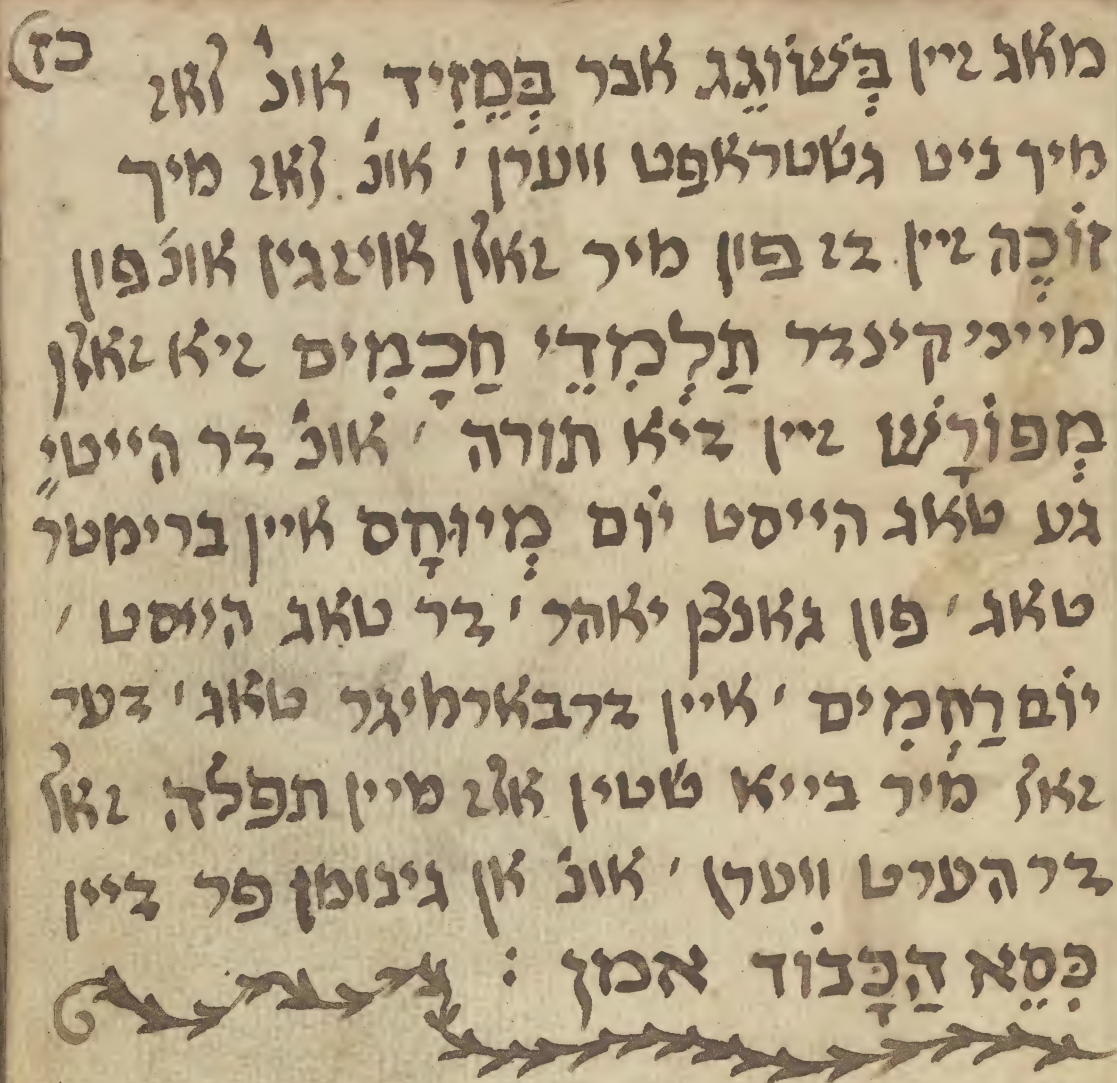 כז
מאג זיין בְּשׁוֹגֵג אבר בְּמֵזִיד אונ' לאז
מיך ניט גשטראפט ווערן ' אונ' לאז מיך
זוֹכֶה זיין דז פון מיר זאלן אויזגין אונ' פון
מייני קינדר תַלְמְדֵי חַכָמִים זיא זאלן
מְפוֹרָשׁ זיין דיא תורה ' אונ' דר הייטי
גע טאג הייסט יוֹם מְיוּחָס איין ברימטר
טאג ' פון גאנצן יאהר ' דר טאג הייסט '
יוֹם רַחְמִים ' איין דרבארמיגר טאג ' דער
זאל מיר בייא שטין אלז מיין תפלה זאל
דר הערט ווערן ' אונ' אן גינומן פר דיין
כִּסֵא הַכָּבוֹד אמן :